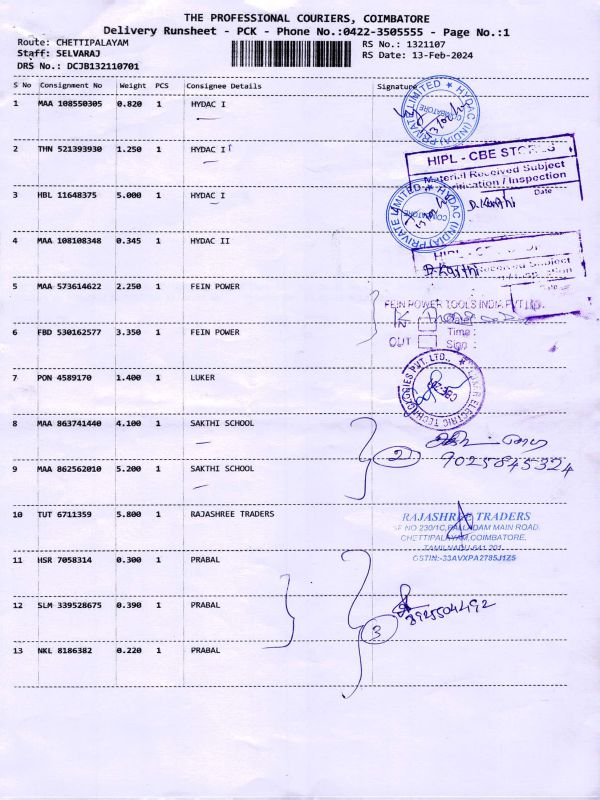 THE PROFESSIONAL COURIERS, COIMBATORE
Delivery Runsheet - PCK - Phone No.:0422-3505555 - Page No.:1
Route: CHETTIPALAYAM RS No.: 1321107
Staff: SELVARAJ RS Date: 13-Feb-2024
DRS No.: DCJB132110701
S No Consignment No Weight PCS Consignee Details Signature
1 MAA 108550305 0.820 1 HYDAC I
HYDAC (INDIA) PRIVATE LIMITED
COIMBATORE
2 THN 521393930 1.250 1 HYDAC I
HIPL - CBE STORES
Material Received Subject
Verification / Inspection
Date
3 HBL 11648375 5.000 1 HYDAC I
HYDAC (INDIA) PRIVATE LIMITED
COIMBATORE
D.Karthi
4 MAA 108108348 0.345 1 HYDAC II
D.Karthi
5 MAA 573614622 2.250 1 FEIN POWER
FEIN POWER TOOLS INDIA PVT LTD.
IN
OUT
Time :
Sign :
6 FBD 530162577 3.350 1 FEIN POWER
7 PON 4589170 1.400 1 LUKER
ELECTRIC TECHNOLOGIES PVT. LTD.,
8 MAA 863741440 4.100 1 SAKTHI SCHOOL
2
9025845324
9 MAA 862562010 5.200 1 SAKTHI SCHOOL
10 TUT 6711359 5.800 1 RAJASHREE TRADERS
RAJASHREE TRADERS
SF NO 230/1C, PALLADAM MAIN ROAD
CHETTIPALAYAM, COIMBATORE,
TAMILNADU-641 201.
GSTIN:-33AVXPA2785J1Z5
11 HSR 7058314 0.300 1 PRABAL
12 SLM 339528675 0.390 1 PRABAL
8925504492
3
13 NKL 8186382 0.220 1 PRABAL